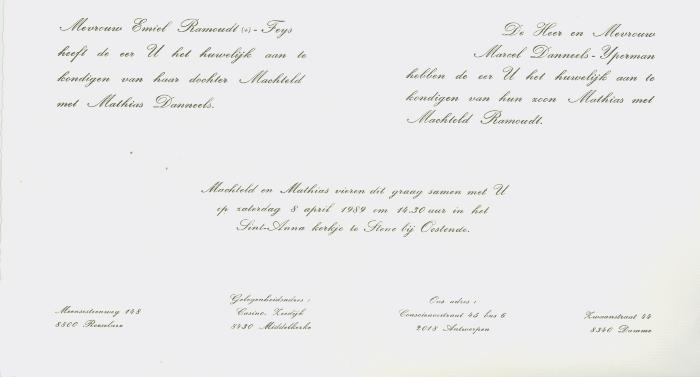 Mevrouw Emiel Ramoudt (+) - Feys
heeft de eer U het huwelijk aan te
kondigen van haar dochter Machteld
met Mathias Danneels.
De Heer en Mevrouw
Marcel Danneels-Yperman
hebben de eer U het huwelijk aan te
kondigen van hun zoon Mathias met
Machteld Ramoudt.
Machteld en Mathias vieren dit graag samen met U
op zaterdag 8 april 1989 om 14.30 uur in het
Sint-Anna kerkje te Stene bij Oostende.
Meensesteenweg 148
8800 Roeselare
Gelegenheidsadres :
Casino, Zeedijk
8430 Middelkerke
Ons adres :
Consciencestraat 45 bus 6
2018 Antwerpen
Zwaanstraat 44
8340 Damme